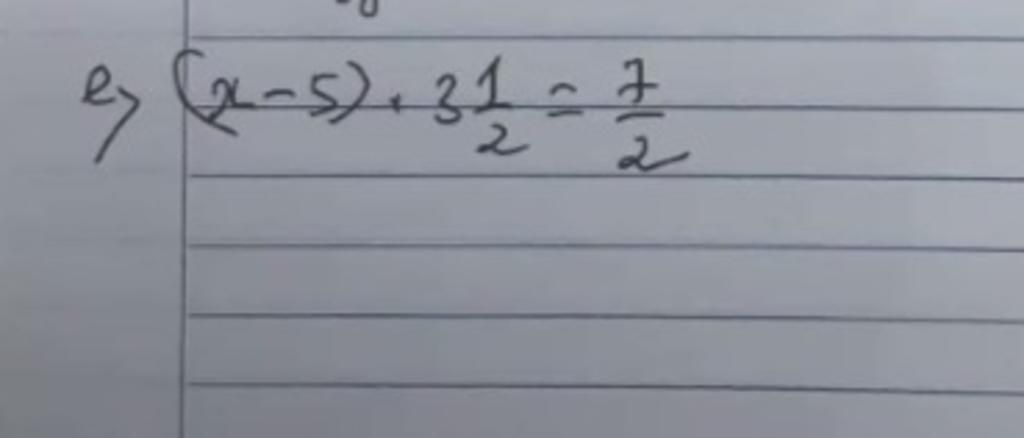 e, (x-5) . 3 1/2 = 7/2